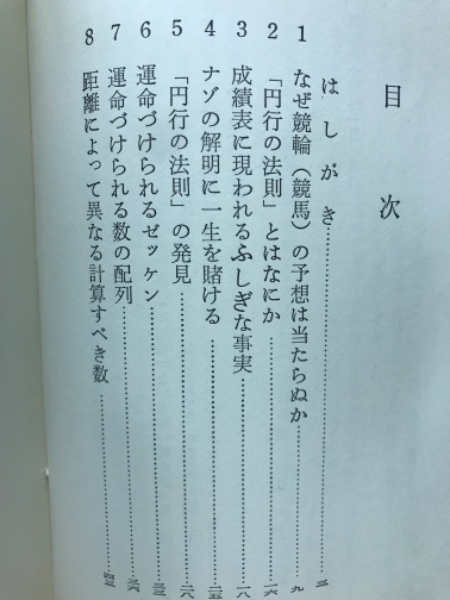 目次
はしがき……三
1 なぜ競輪（競馬）の予想は当たらぬか……九
2 「円行の法則」とはなにか……一六
3 成績表に現われるふしぎな事実……一八
4 ナゾの解明に一生を賭ける……二五
5 「円行の法則」の発見……二八
6 運命づけられるゼッケン……三三
7 運命づけられる数の配列……三六
8 距離によって異なる計算すべき数……四三